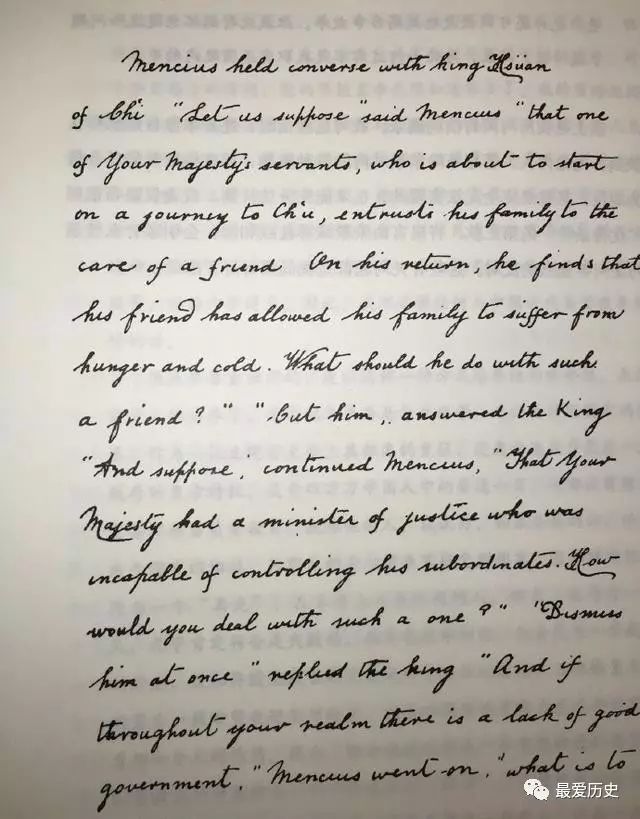 Mencius held converse with king Hsüan
of Ch'i "Let us suppose" said Mencius "that one
of Your Majesty's servants, who is about to start
on a journey to Ch'u, entrusts his family to the
care of a friend On his return, he finds that
his friend has allowed his family to suffer from
hunger and cold. What should he do with such
a friend?" "Cut him, answered the King
"And suppose", continued Mencius, "That Your
Majesty had a minister of justice who was
incapable of controlling his subordinates. How
would you deal with such a one?" "Dismiss
him at once" replied the king "And if
throughout your realm there is a lack of good
government," Mencius went on, "what is to
最爱历史